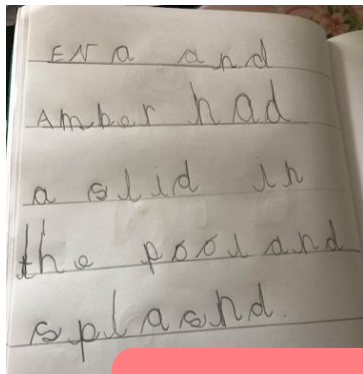 ENa and
Amber had
a slid in
the pool and
splashd.